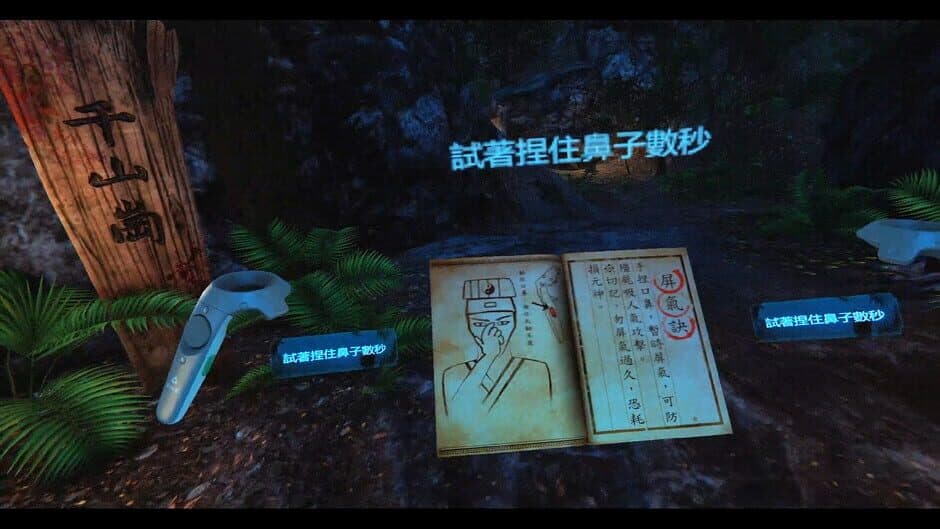 千山崗
試著捏住鼻子數秒
試著捏住鼻子數秒
屏氣訣
手捏口鼻，暫時屏氣，可防
殭屍吸人氣攻擊。
切記，勿屏氣過久，恐耗
損元神。
試著捏住鼻子數秒